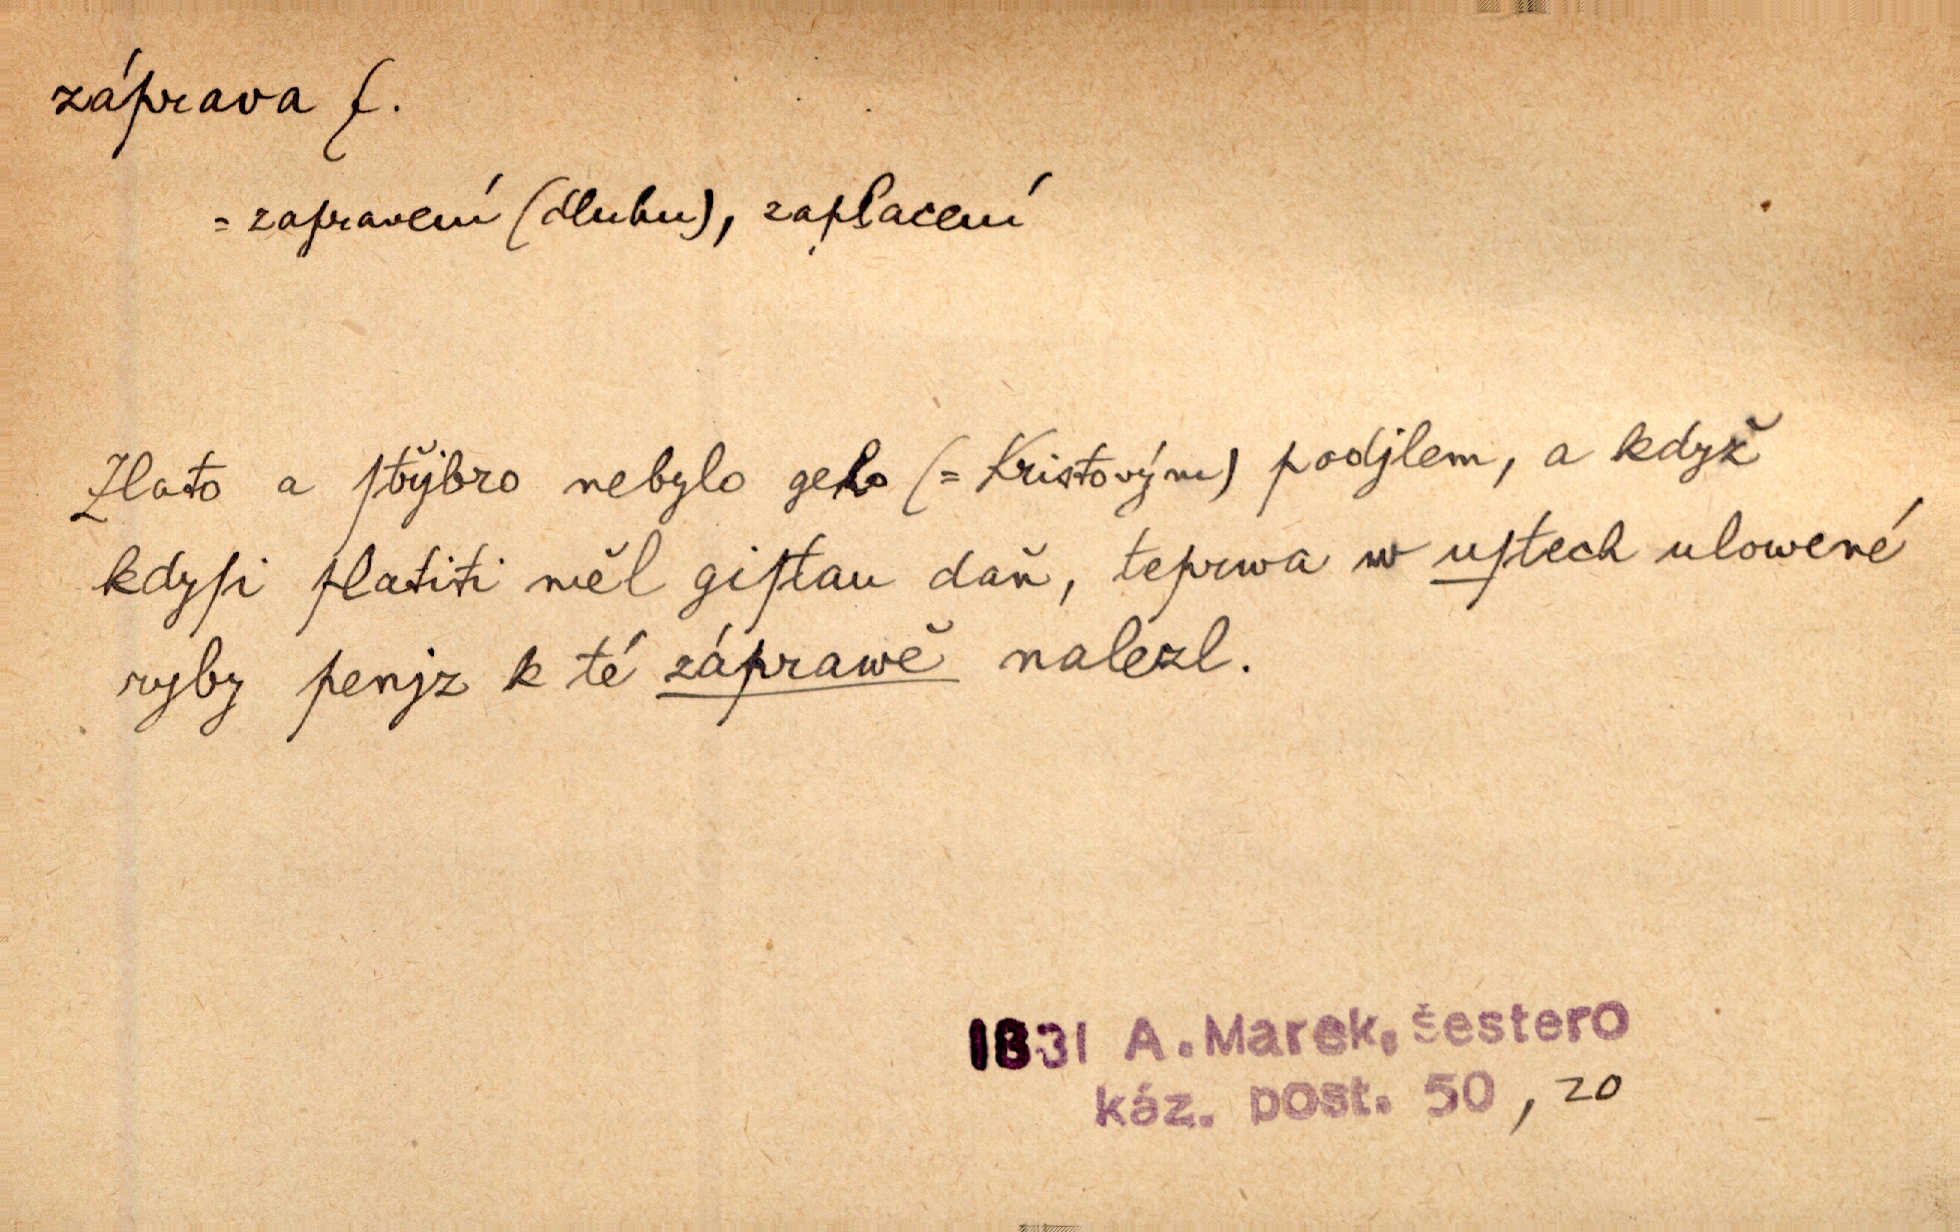 záprava f.
= zapravení (dluhu), zaplacení
Zlato a ſtřjbro nebylo geho (= Kristovým) podjlem, a když
kdyſi platiti měl giſtau daň, teprwa w uſtech ulowené
ryby penjz k té záprawě nalezl.
1831 A. Marek, šestero
káz. post. 50, 20